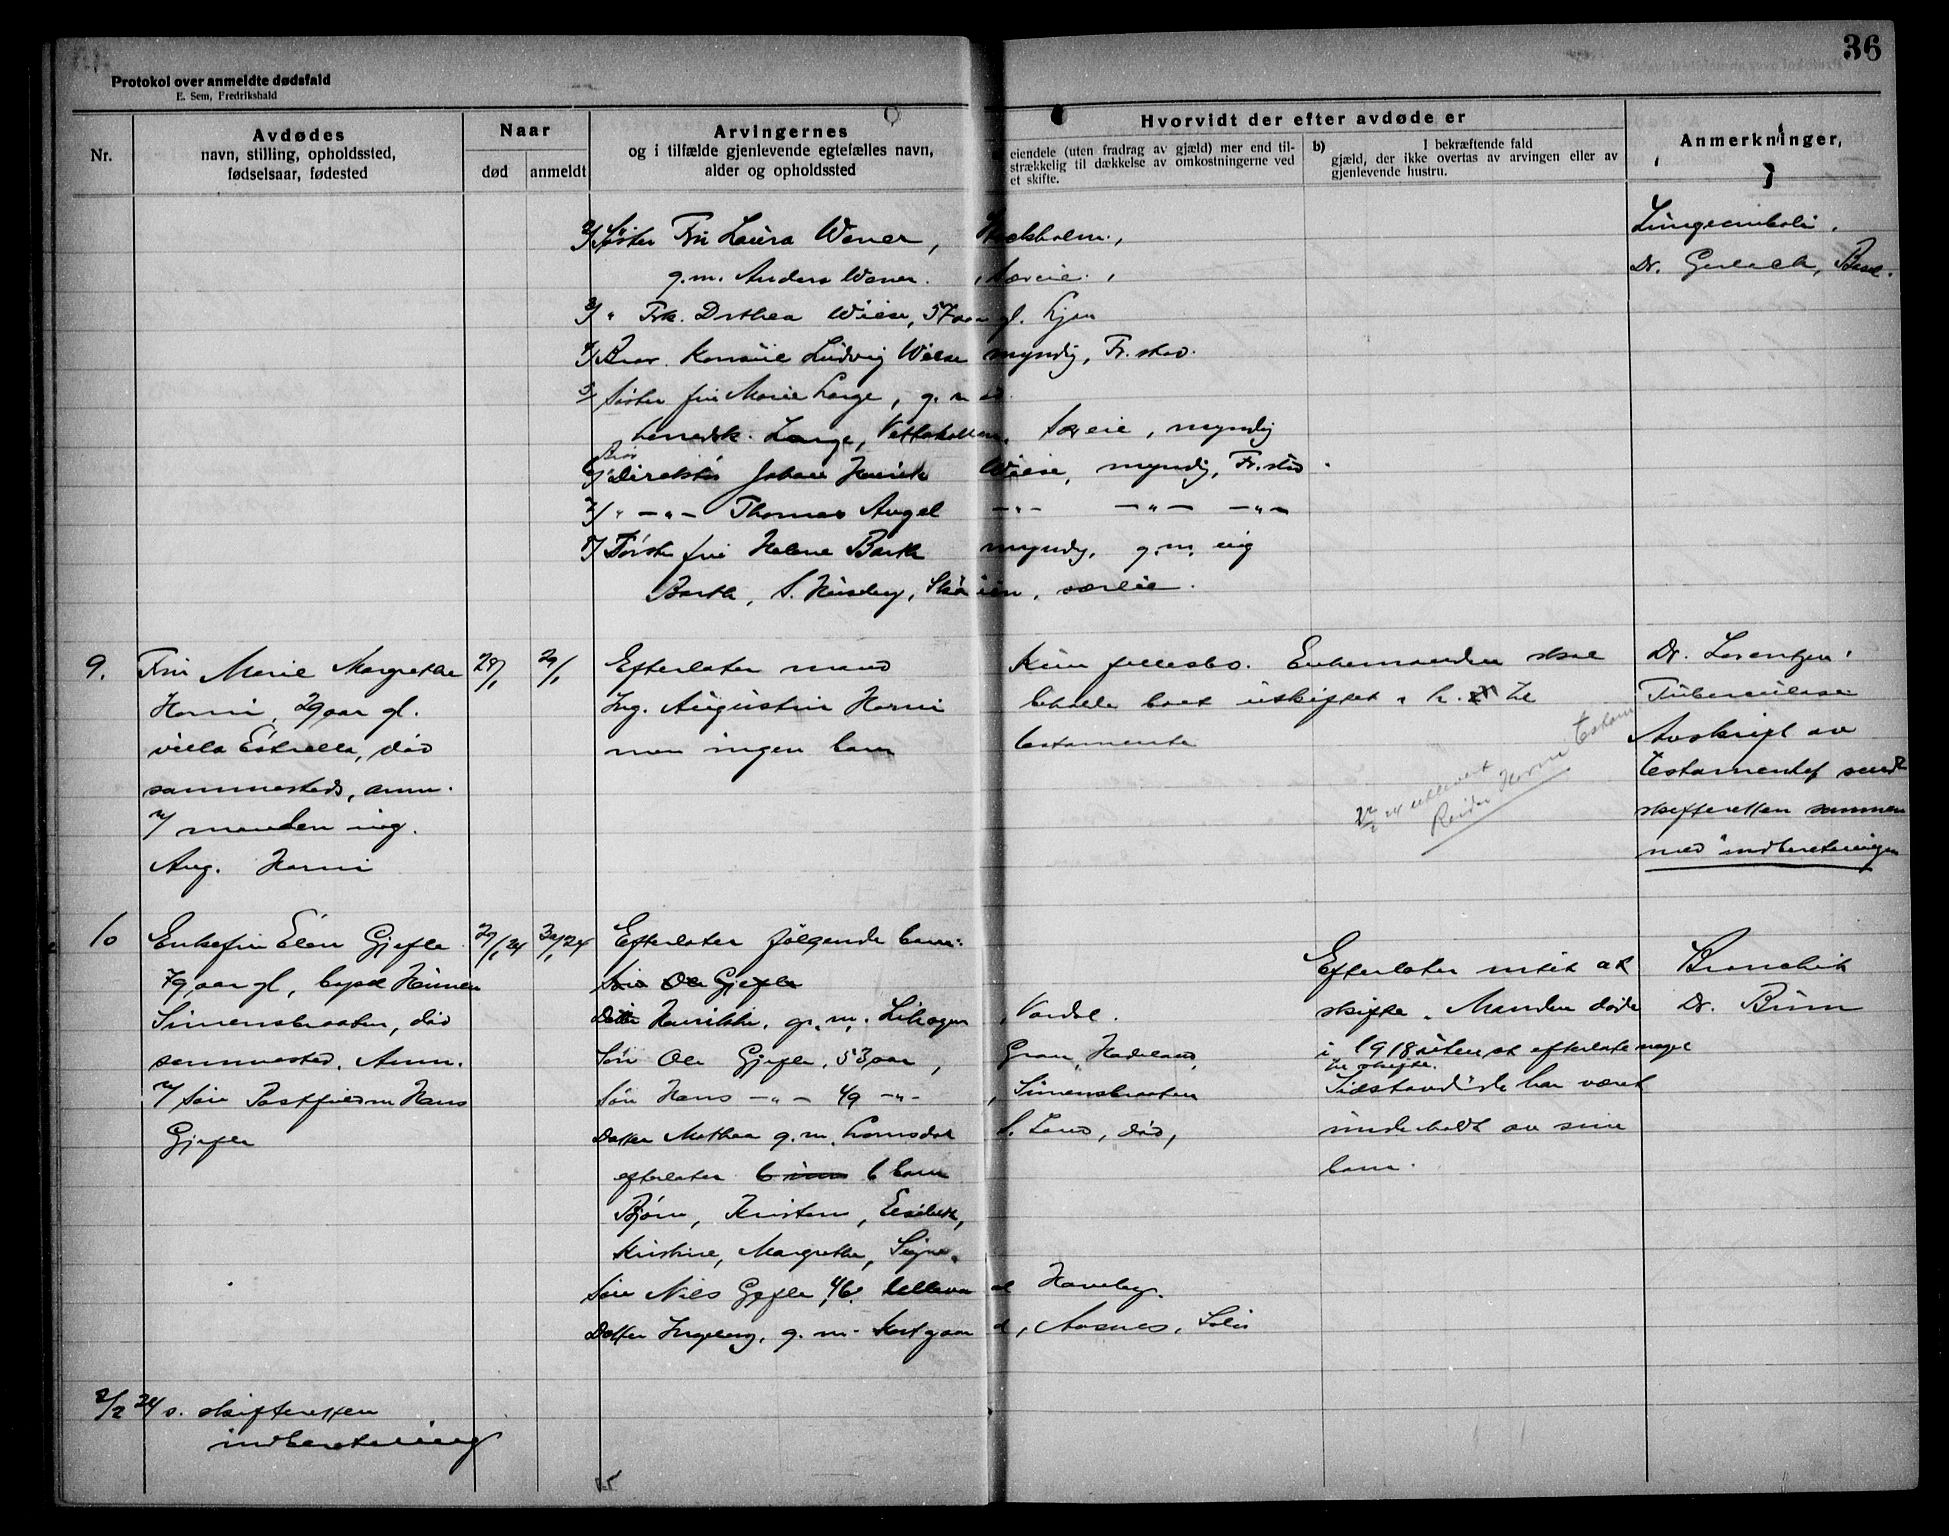 36
Protokol over anmeldte dødsfald
E. Sem, Fredrikshald
Nr.
Avdødes
navn, stilling, opholdssted,
fødselsaar, fødested
Naar
død anmeldt
Arvingernes
og i tilfælde gjenlevende egtefælles navn,
alder og opholdssted
Hvorvidt der efter avdøde er
eiendele (uten fradrag av gjæld) mer end til-
strækkelig til dækkelse av omkostningerne ved
et skifte.
b) I bekræftende fald
gjæld, der ikke overtas av arvingen eller av
gjenlevende hustru.
Anmerkninger,
2/ Søster Fru Laura Waner, Stockholm,
g.m. Anders Waner. særeie.
3/ " Frk. Dorthea Wiese, 57 aar gl. Ljan
4/ Bror. Konsul Ludvig Wiese myndig, Fr.stad.
5/ Søster fru Marie Lange, g. m.
Lange, Vettakollen, særeie, myndig
Bror
6/ Direktør Johan Henrik Wiese, myndig, Fr.stad.
7/ " -"- Thomas Angel -"- -"- -"-
8/ Søster fru Helene Barth myndig, g.m. ing
Barth, Skøien, særeie.
Lungeemboli.
Dr. Gerlach, Basel.
9. Fru Marie Margrethe
Horni, 29 aar gl.
villa Estrella, død
sammesteds, anm.
v/ manden ing.
Aug. Horni
28/1 29/1
Efterlater mand
Ing. Augustin Horni
men ingen barn
Kun fellesbo. Enkemanden skal
beholde boet uskiftet i h. t.
testamente
utlevert
Horni testam
Dr. Lorentzen.
Tuberculose
Avskrift av
testamentet sendt
skifteretten sammen
med indberetningen
10 Enkefru Elen Gjefle
79 aar gl, bopæl
Simensbraaten, død
sammested. Anm.
v/ Søn Postfuldm Hans
Gjefle
29/1 24 30/1 24
Efterlater følgende barn:
Søn Ole Gjefle
Datter Henrikke, g. m. Lihagen, Vardal.
Søn Ole Gjefle, 53 aar, Gran, Hadeland,
Søn Hans -"- 49 -"-, Simensbraaten
Datter Mathea g.m. Lomsdal S. Land, død,
efterlater 6 barn
Bjørn, Kristen, Elisabeth,
Kristine, Margrethe, Signe.
Søn Nils Gjefle, 46, Ullevaal Haveby.
Datter Ingeborg, g. m. Kortgaard, Aasnes, Solør
Efterlater intet at
skifte. Manden døde
i 1918 uten at efterlate noget
til skifte.
Sidstavdøde har været
underholdt av sine
barn.
Bronchit
Dr. Bruun
2/2 24 s. skifteretten
indberetning